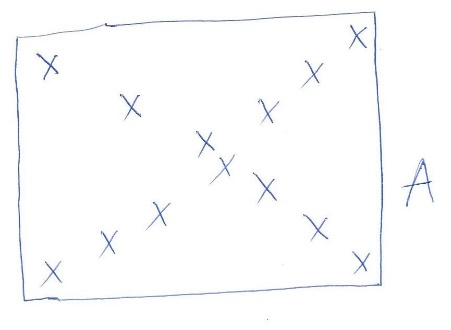 X
X X
X X
X
X
X A
X X
X
X X